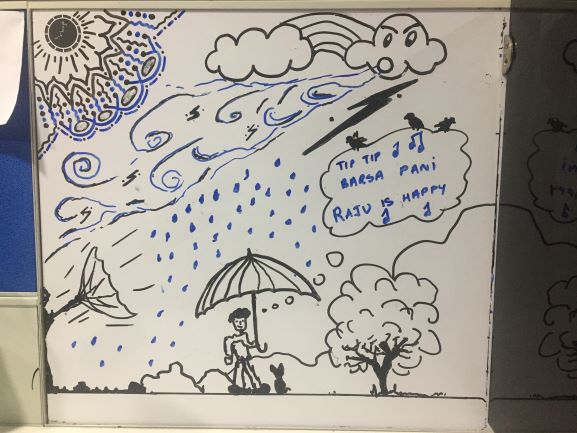 TIP TIP
BARSA PANI
RAJU IS HAPPY